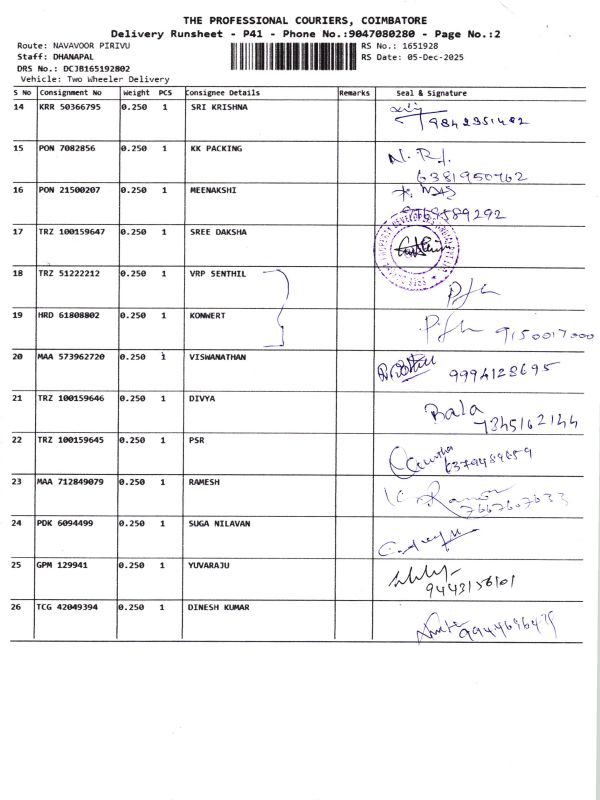 THE PROFESSIONAL COURIERS, COIMBATORE
Delivery Runsheet - P41 - Phone No.:9047080280 - Page No.:2
Route: NAVAVOOR PIRIVU
RS No.: 1651928
Staff: DHANAPAL
RS Date: 05-Dec-2025
DRS No.: DCJB165192802
Vehicle: Two Wheeler Delivery
S No Consignment No Weight PCS Consignee Details Remarks Seal & Signature
14 KRR 50366795 0.250 1 SRI KRISHNA
9842351482
15 PON 7082856 0.250 1 KK PACKING
6381950762
16 PON 21500207 0.250 1 MEENAKSHI
17 TRZ 100159647 0.250 1 SREE DAKSHA
18 TRZ 51222212 0.250 1 VRP SENTHIL
19 HRD 61808802 0.250 1 KONWERT
9150017000
20 MAA 573962720 0.250 1 VISWANATHAN
9994128695
21 TRZ 100159646 0.250 1 DIVYA
Bala
7345162144
22 TRZ 100159645 0.250 1 PSR
6379489659
23 MAA 712849079 0.250 1 RAMESH
7667607633
24 PDK 6094499 0.250 1 SUGA NILAVAN
25 GPM 129941 0.250 1 YUVARAJU
9443156101
26 TCG 42049394 0.250 1 DINESH KUMAR